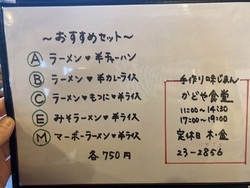 ～おすすめセット～
Ⓐ ラーメン♥半チャーハン
Ⓑ ラーメン♥半カレーライス
Ⓒ ラーメン♥もつに♥半ライス
Ⓔ みそラーメン♥半ライス
Ⓜ マーボーラーメン♥半ライス
各750円
手作り味じまん
かどや食堂
11:00～14:30
17:00～19:00
定休日 木・金
23-2856